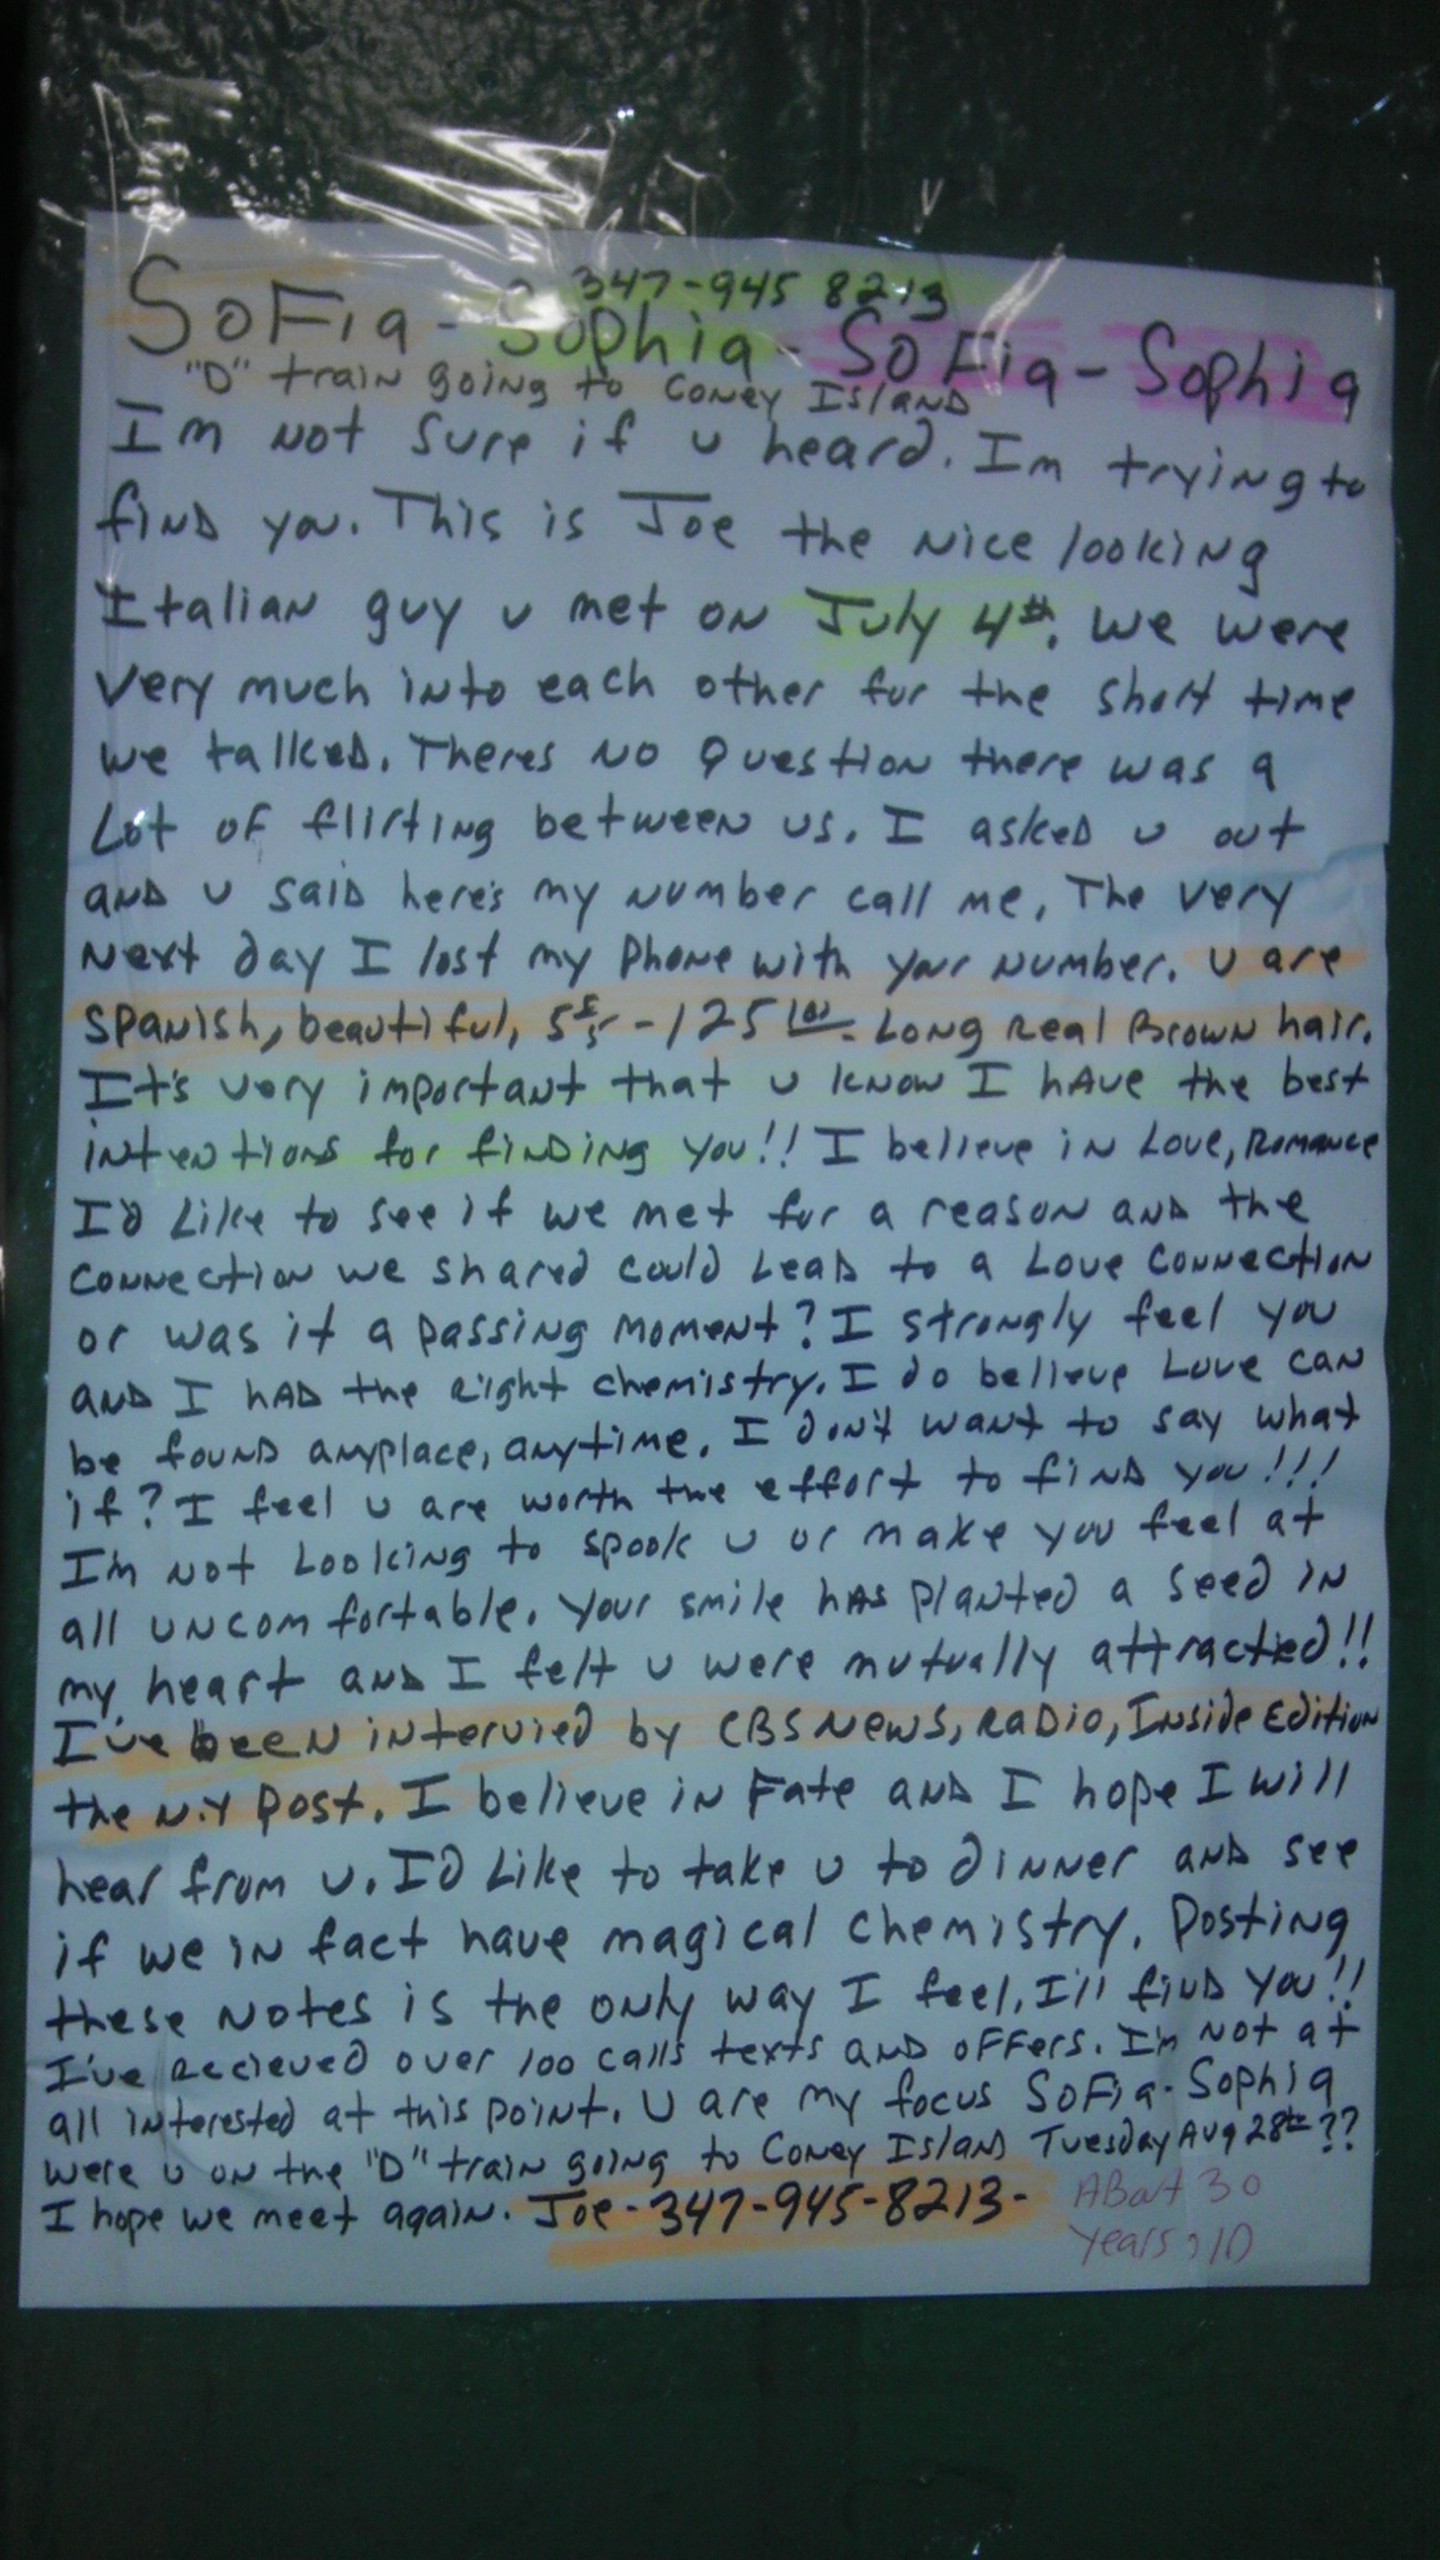 347-945 8213
SoFia - Sophia - SoFia - Sophia
"D" train going to Coney Island
Im not sure if u heard. Im trying to
find you. This is Joe the nice looking
Italian guy u met on July 4th. We were
very much into each other for the short time
we talked. Theres no question there was a
Lot of flirting between us. I asked u out
and u said here's my number call me. The very
next day I lost my phone with your number. U are
Spanish, beautiful, 5ft 5 - 125 lbs. Long Real Brown hair.
It's very important that u know I have the best
intentions for finding you!! I believe in Love, Romance
I'd Like to see if we met for a reason and the
connection we shared could Lead to a Love connection
or was it a passing moment? I strongly feel you
and I had the right chemistry. I do believe Love can
be found anyplace, anytime. I don't want to say what
if? I feel u are worth the effort to find you!!!
I'm not Looking to spook u or make you feel at
all uncomfortable. Your smile has planted a seed in
my heart and I felt u were mutually attractied!!
I've been intervied by CBS News, Radio, Inside Edition
the N.Y Post. I believe in Fate and I hope I will
hear from u. I'd Like to take u to dinner and see
if we in fact have magical chemistry. Posting
these notes is the only way I feel, I'll find you!!
I've recieved over 100 calls texts and offers. I'm not at
all interested at this point. U are my focus SoFia-Sophia
were u on the "D" train going to Coney Island Tuesday Aug 28th??
I hope we meet again. Joe - 347-945-8213 -
About 30
years old